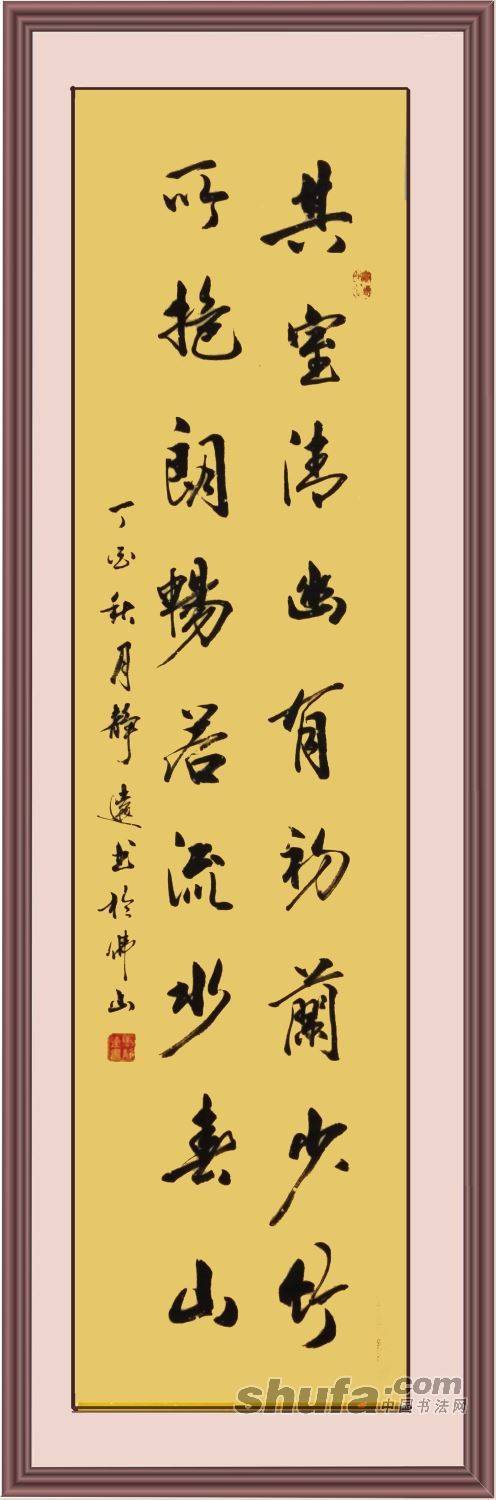 其室清幽有初蘭少竹
所抱朗暢若流水春山
丁酉秋月靜遠書於佛山
shufa.com
中国书法网